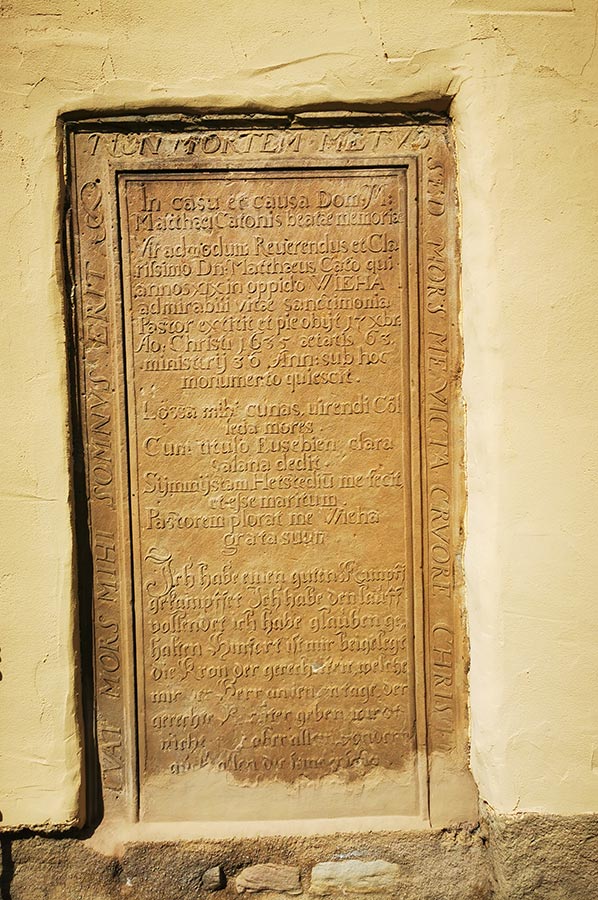 NON MORTEM METVS
SED MORS ME VICTA CRVORE CHRISTI
VAT MORS MIHI SOMNVS ERIT
In casu et causa Dom: M:
Matthaej Catonis beatae memoriae
Vir admodum Reverendus et Cla
rissimo Dn: Matthaeus Cato qui
annos XIX in oppido WIEHA
admirabili vitae sanctimonia
Pastor extitit et pie obijt 17 xbr.
Ao. Christi 1635 aetatis 63.
ministerij 36 Ann: sub hoc
monumento quiescit.
Lossa mihi cunas, uirendi Col
legia mores.
Cum titulo Eusebien clara
salana dedit.
Sijmmijstam Hetstediu me fecit
et esse maritum.
Pastorem plorat me Wieha
grata suun
Ich habe einen guten Kampff
gekampffet Ich habe den lauff
vollendet ich habe glauben ge
halten Hinfort ist mir beigelegt
die Kron der gerechten, welche
mir der Herr an jenen tage, der
gerechte Richter geben wirdt
nicht aber allein sondern
auch allen die seine